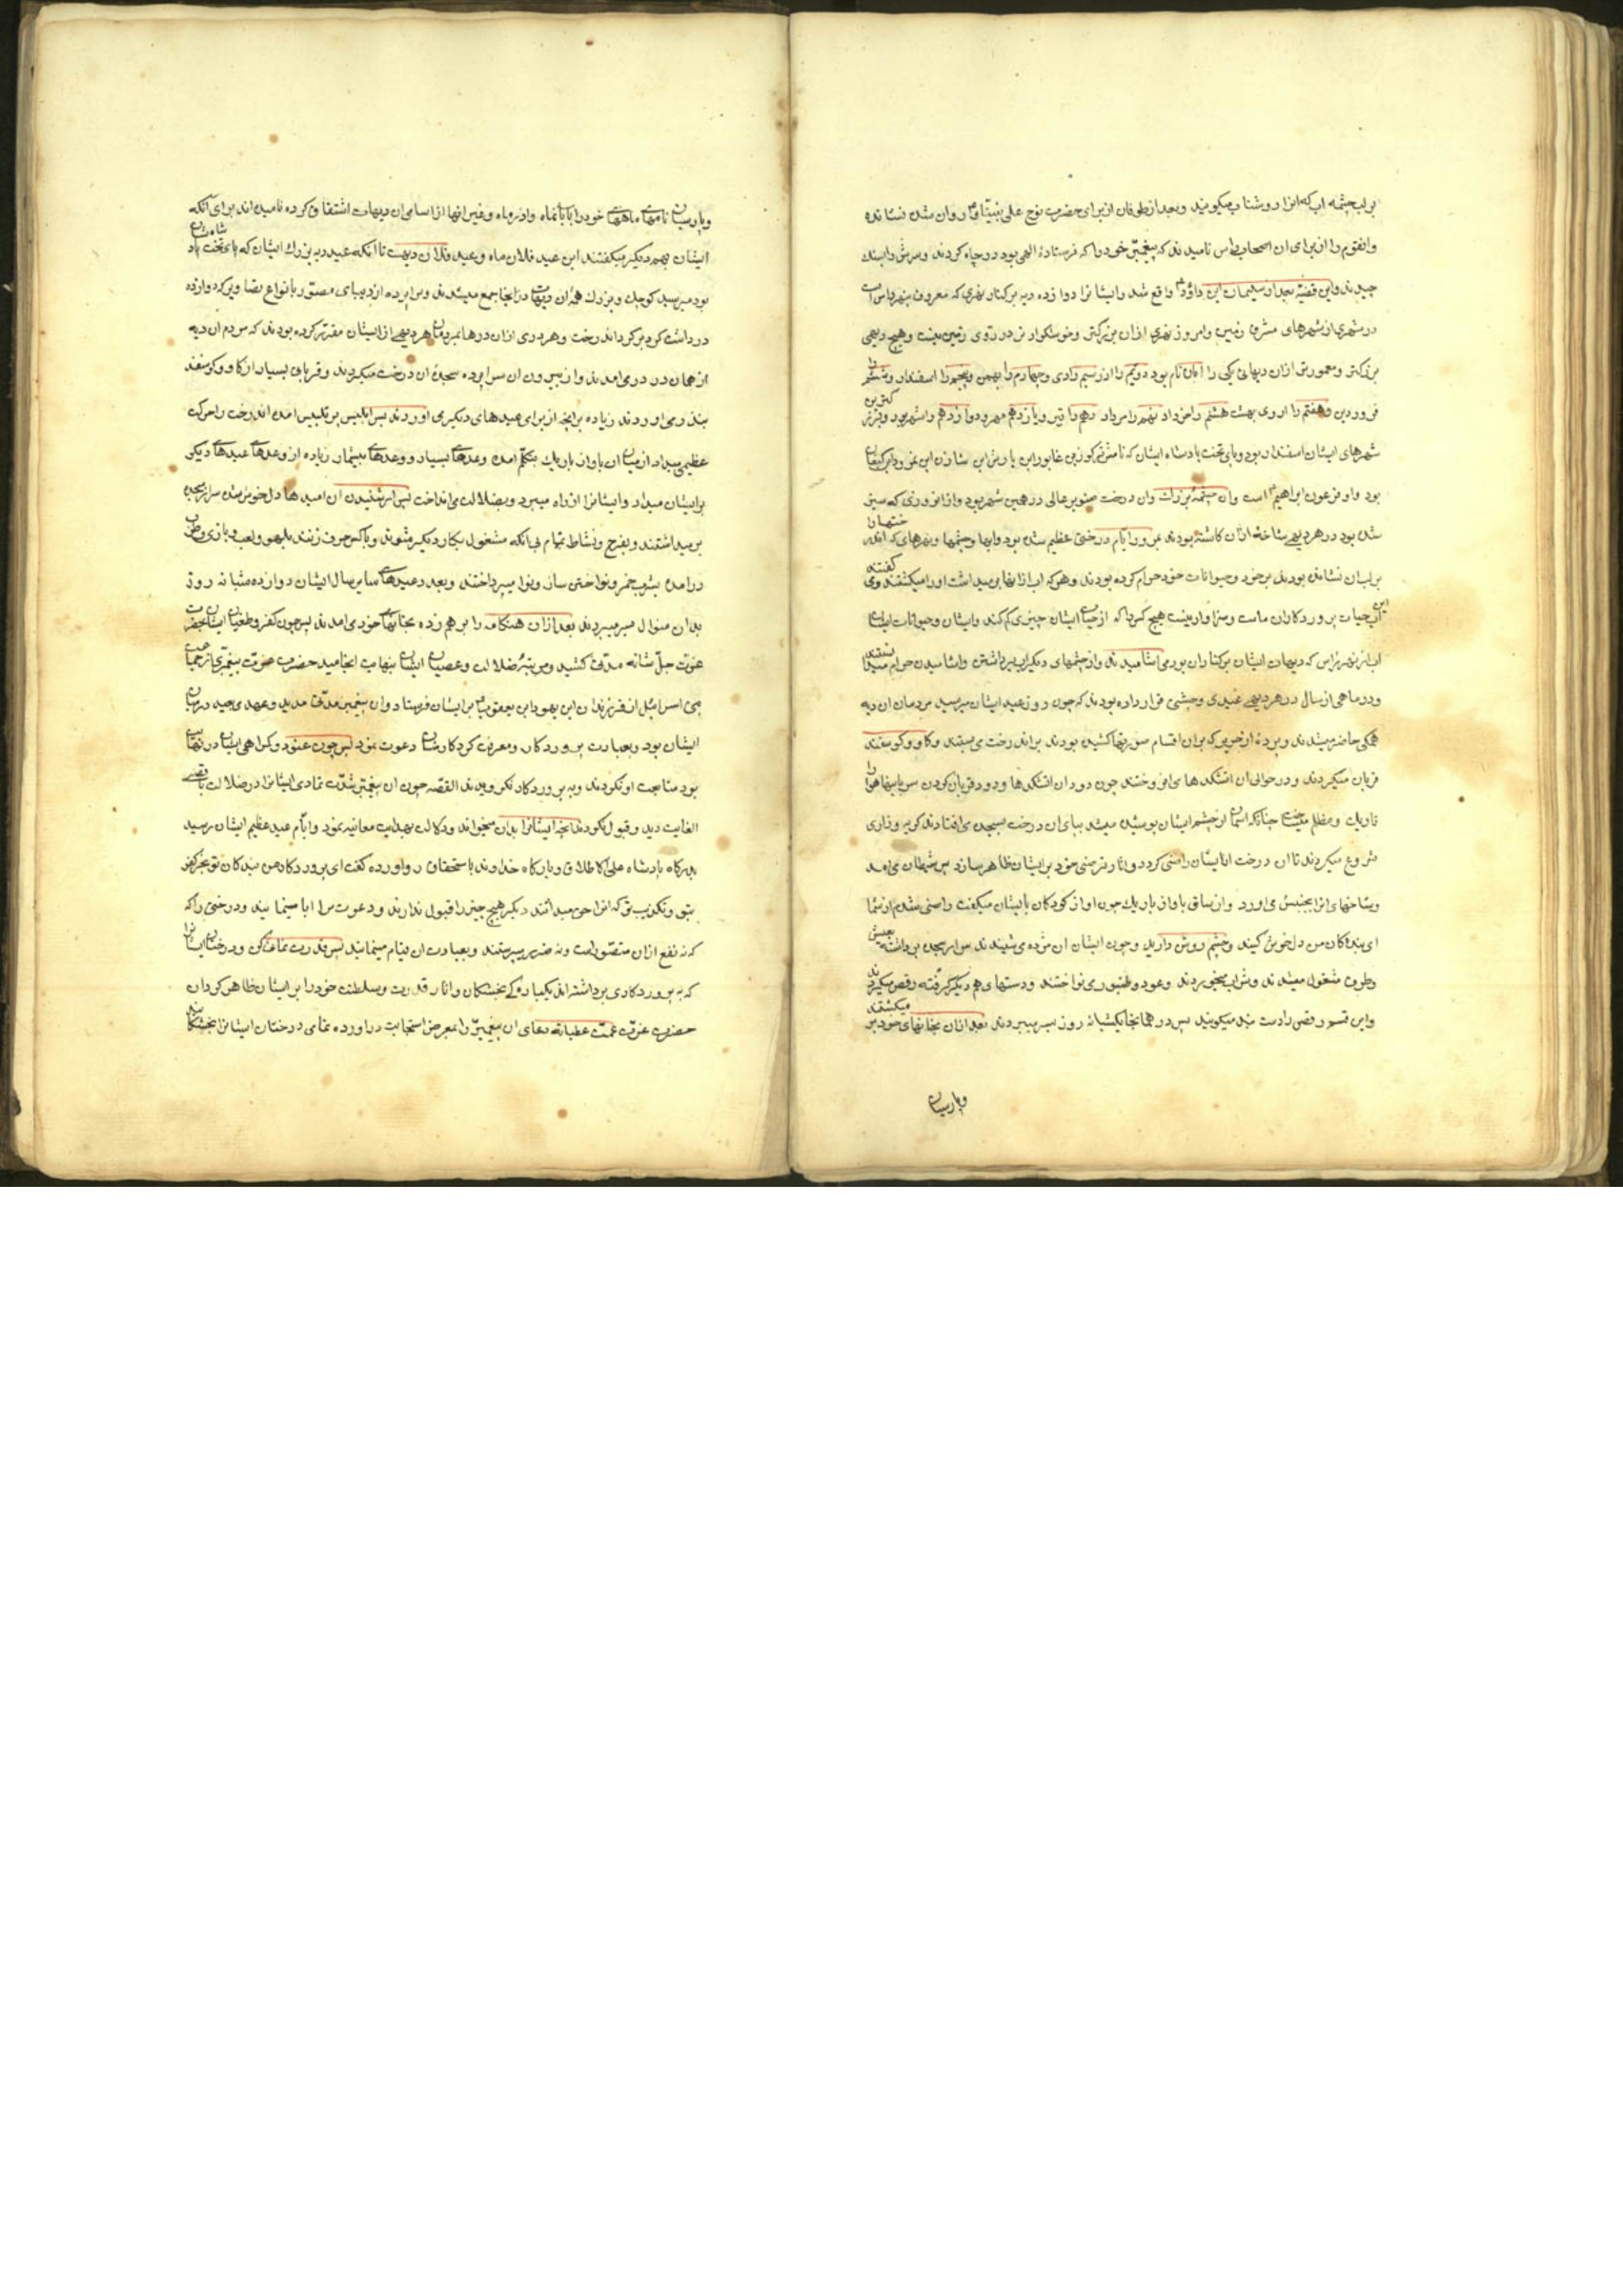 بر لب چشمه اب که انرا روشناب میکویند و بعد از طوفان از برای حضرت نوح علی نبینا و روان شده نشانده
وانقوم را از برای ان اصحاب الرس نامیدند که پیغمبر خود را که فرستادهٔ الهی بود در چاه کردند و سرش را بسنک
چیدند و این قضیه بعد از سلیمان ابن داود واقع شد و ایشانرا دوازده دیه بر کنار نهری که معروف بنهر راس است
در شهری از شهرهای مشرق زمین و امروز نهری ازان بزرکتر و خوشکوارتر در روی زمین نیست و هیچ دیهی
بزرکتر و معمورتر ازان دیهای یکی را ابان نام بود دویم را اذر سیم را دی و چهارم را بهمن و پنجم را اسفندار و ششم را
فروردین و هفتم را اردی بهشت هشتم را خرداد نهم را مرداد دهم را تیر و یازدهم مهر و دوازدهم را شهریور و بزرکترین
شهرهای ایشان اسفندار بود و پای تخت پادشاه ایشان که نامش ترکوز بن غابور ابن یارش ابن سازن ابن نمرود ابن کنعان
بود و او فرعون ابراهیم است وان چشمهٔ بزرك وان درخت صنوبر عالی در همین شهر بود و از انروزی که سبز
شده بود در هر دیهی شاخهٔ ازان کاشته بودند بمرور ایام درختی عظیم شده بود و ابها و چشمها و نهرهای که اندرختها را
بر لب ان نشانده بودند بر خود و حیوانات خود حرام کرده بودند و هر که اب از انها بر میداشت او را میکشتند و می کفتند
این اب حیات پروردکاران ماست و سزاوار نیست هیچ کس را که از حیات ایشان چیزی کم کند و ایشان و حیوانات ایشان
اب از نهر راس که دیهات ایشان بر کنار ان بود می اشامیدند و از چشمهای دیکر اب برداشتن و اشامیدن حرام میدانستند
و در ماهی از سال در هر دیهی عیدی و جشنی قرار داده بودند که چون روز عید ایشان میرسید مردمان ان دیه
همکی حاضر میشدند و پردهٔ از حریر که بران اقسام صورتها کشیده بودند بر اندرخت می بستند و کاو و کوسفند
قربان میکردند و در حوالی ان اتشکدها می افروختند چون دود ان اتشکدها و دود قربان کردن سر باینها هوا را
تاریك و مظلم میساخت چنانکه اسمان از چشم ایشان پوشیده میشد بپای ان درخت بسجده می افتادند کریه و زاری
شروع میکردند تا ان درخت از ایشان راضی کردد و اثار رضی خود بر ایشان ظاهر سازد پس شیطان می امد
و شاخهای انرا بجنبش می اورد و از ساق با واز باریك چون اواز کودکان با ایشان میکفت راضی شدم از شما
ای بندکان من دل خوش کنید و چشم روشن دارید و چون ایشان ان مژده می شنیدند سر از سجده برداشته بعیش
و طرب مشغول میشدند و شراب میخوردند و عود و طنبور می نواختند و دستهای هم دیکر کرفته رقص میکردند
و این قسم رقص را دست بند میکویند پس در همانجا یکشبانه روز بسر میبردند بعد ازان بخانهای خود بر میکشتند
و پارسیان
و پارسیان نامهای ماههای خود را ابانماه و اذرماه و غیر انها از اسامی ان دیهات اشتقاق کرده نامیده اند برای انکه
ایشان بهم دیکر میکفتند این عید فلان ماه و عید فلان دیهست تا انکه عید دیه بزرك ایشان که پای تخت پادشاه شان
بود میرسید کوچك و بزرك همه ان دیهات در انجا جمع میشدند و سراپرده از دیبای مصور بانواع تصاویر که دوازده
در داشت کرد بر کرد اندرخت و هر دری ازان درها بمردمان هر دیهی از ایشان مقرر کرده بودند که مردم ان دیه
از همان در در می امدند و از بیرون ان سراپرده سجدهٔ ان درخت میکردند و قربانی بسیار از کاو و کوسفند
بنذر می اوردند زیاده بر انچه از برای عیدهای دیکر می اوردند پس ابلیس پر تلبیس امده اندرخت را حرکت
عظیمی میداد از میان ان با واز باریك بتکلم امده وعدهای بسیار و وعدهای بیشمار زیاده از وعدهای عیدهای دیکر
بر ایشان میداد و ایشانرا از راه میبرد و بضلالت می انداخت پس از شنیدن ان امیدها دل خوش شده سر از سجده
بر میداشتند و بفرح و نشاط تمام بی انکه مشغول بکار دیکر شوند و با کس حرف زنند بلهو و لعب و بازی و طرب
در امده بشرب خمر و نواختن ساز و نوا میپرداختند و بعدد عیدهای سایر سال ایشان دوازده شبانه روز
بدان منوال بسر میبردند بعد ازان هنکامه را بر هم زده بخانهای خود می امدند پس چون کفر و طغیان ایشان بحضرت
عزت جل شانه مدتی کشید و مرتبهٔ ضلالت و عصیان ایشان بنهایت انجامید حضرت عزت پیغمبری از جمله
بنی اسرائیل از فرزندان ابن یهودا بن یعقوب بر ایشان فرستاد وان پیغمبر مدتی مدید و عهدی بعید در میان
ایشان بود و بعبادت پروردکار و معرفت کردکار شان دعوت نمود پس چون عتود و کراهی ایشان در نهایت
بود متابعت او نکردند و به پروردکار نکرویدند القصه چون ان پیغمبر شدت تمادی ایشانرا در ضلالت باقصی
الغایت دید و قبول نکردند انچه ایشانرا بدان میخواند و دلالت بهدایت معاینه نمود و ایام عید عظیم ایشان رسید
بدرکاه پادشاه علی الاطلاق و بارکاه خداوند باستحقاق رو اورده کفت ای پروردکار من بندکان تو بجز کفر
بتو و تکذیب تو که انرا خوب میدانند دیکر هیچ چیز را قبول ندارند و دعوت مرا ابا مینمایند و درختی را که
که نه نفع ازان متصور است و نه ضرر میپرستند و بعبادت ان قیام مینمایند پس قدرت نمائی کن و درختان ایشانرا
که به پروردکاری برداشته اند یکباره کی بخشکان و اثار قدرت و سلطنت خود را بر ایشان ظاهر کردان
حضرت عزت عمت عطیاته دعای ان پیغمبر را بمعرض استجابت در اورده تمامی درختان ایشانرا بخشکانید